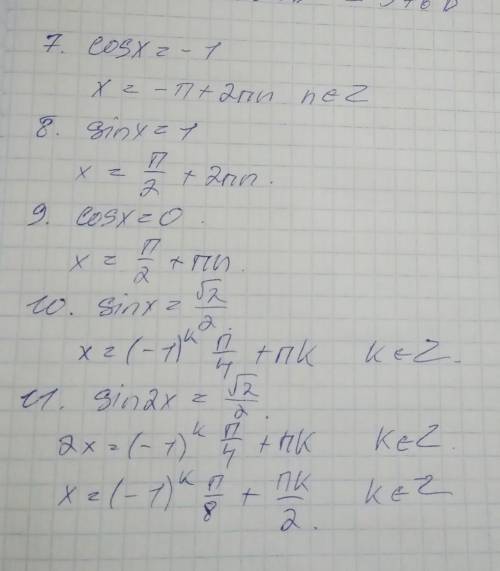 7. cosx = -1
x = -π + 2πn n∈Z
8. sinx = 1
x = π/2 + 2πn.
9. cosx = 0.
x = π/2 + πn.
10. sinx = √2/2.
x = (-1)^k π/4 + πk k∈Z.
11. sin2x = √2/2.
2x = (-1)^k π/4 + πk k∈Z.
x = (-1)^k π/8 + πk/2. k∈Z